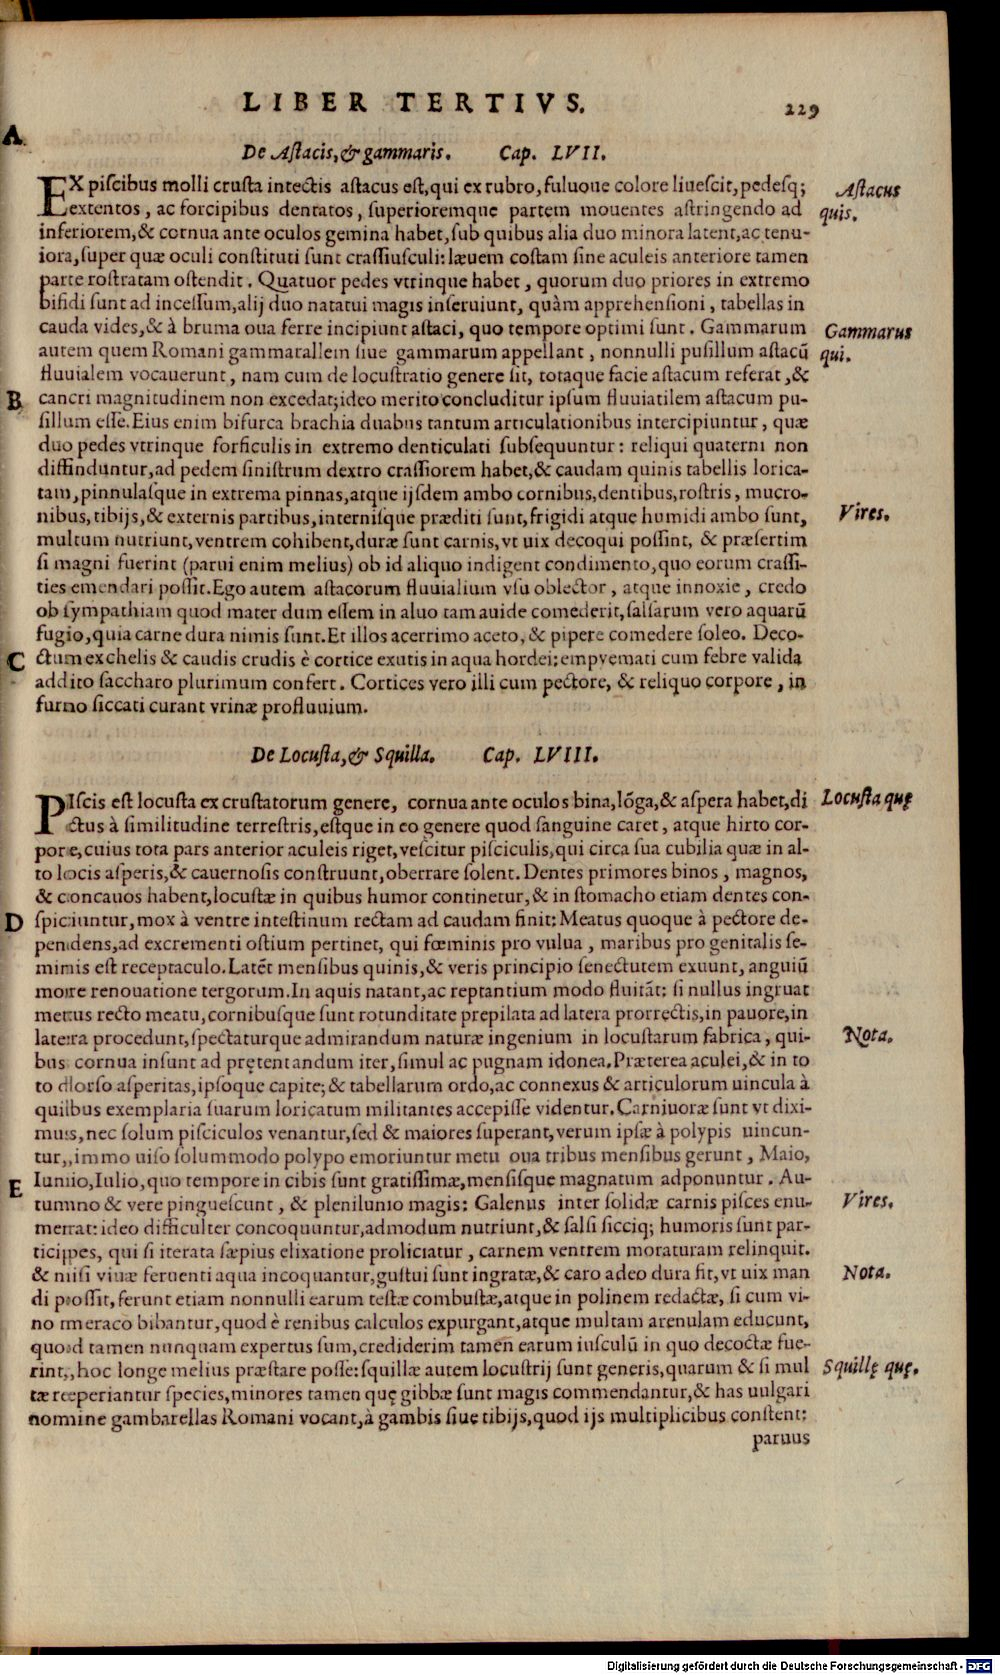 LIBER TERTIVS. 229
A
De Astacis, & gammaris. Cap. LVII.
EX piscibus molli crusta intectis astacus est, qui ex rubro, fuluoue colore liuescit, pedesq;
extentos, ac forcipibus dentatos, superioremque partem mouentes astringendo ad
inferiorem, & cornua ante oculos gemina habet, sub quibus alia duo minora latent, ac tenu-
iora, super quæ oculi constituti sunt crassiusculi: læuem costam sine aculeis anteriore tamen
parte rostratam ostendit. Quatuor pedes vtrinque habet, quorum duo priores in extremo
bifidi sunt ad incessum, alij duo natatui magis inseruiunt, quàm apprehensioni, tabellas in
cauda vides, & à bruma oua ferre incipiunt astaci, quo tempore optimi sunt. Gammarum
autem quem Romani gammarallem siue gammarum appellant, nonnulli pusillum astacū
fluuialem vocauerunt, nam cum de locustratio genere sit, totaque facie astacum referat, &
cancri magnitudinem non excedat; ideo merito concluditur ipsum fluuiatilem astacum pu-
sillum esse. Eius enim bifurca brachia duabus tantum articulationibus intercipiuntur, quæ
duo pedes vtrinque forficulis in extremo denticulati subsequuntur: reliqui quaterni non
diffinduntur, ad pedem sinistrum dextro crassiorem habet, & caudam quinis tabellis lorica-
tam, pinnulasque in extrema pinnas, atque ijsdem ambo cornibus, dentibus, rostris, mucro-
nibus, tibijs, & externis partibus, internisque præditi sunt, frigidi atque humidi ambo sunt,
multum nutriunt, ventrem cohibent, duræ sunt carnis, vt uix decoqui possint, & præsertim
si magni fuerint (parui enim melius) ob id aliquo indigent condimento, quo eorum crassi-
ties emendari possit. Ego autem astacorum fluuialium vsu oblector, atque innoxie, credo
ob sympathiam quod mater dum essem in aluo tam auide comederit, salsarum vero aquarū
fugio, quia carne dura nimis sunt. Et illos acerrimo aceto, & pipere comedere soleo. Deco-
ctum ex chelis & caudis crudis è cortice exutis in aqua hordei; empyemati cum febre valida
addito saccharo plurimum confert. Cortices vero illi cum pectore, & reliquo corpore, in
furno siccati curant vrinæ profluuium.
Astacus
quis.
Gammarus
qui.
B
Vires.
C
De Locusta, & Squilla. Cap. LVIII.
PIscis est locusta ex crustatorum genere, cornua ante oculos bina, lōga, & aspera habet, di
ctus à similitudine terrestris, estque in eo genere quod sanguine caret, atque hirto cor-
pore, cuius tota pars anterior aculeis riget, vescitur pisciculis, qui circa sua cubilia quæ in al-
to locis asperis, & cauernosis construunt, oberrare solent. Dentes primores binos, magnos,
& concauos habent, locustæ in quibus humor continetur, & in stomacho etiam dentes con-
spiciuntur, mox à ventre intestinum rectam ad caudam finit: Meatus quoque à pectore de-
pendens, ad excrementi ostium pertinet, qui fœminis pro vulua, maribus pro genitalis se-
minis est receptaculo. Latēt mensibus quinis, & veris principio senectutem exuunt, anguiū
more renouatione tergorum. In aquis natant, ac reptantium modo fluitāt: si nullus ingruat
metus recto meatu, cornibusque sunt rotunditate prepilata ad latera prorrectis, in pauore, in
latera procedunt, spectaturque admirandum naturæ ingenium in locustarum fabrica, qui-
bus cornua insunt ad prętentandum iter, simul ac pugnam idonea. Præterea aculei, & in to
to dorso asperitas, ipsoque capite; & tabellarum ordo, ac connexus & articulorum uincula à
quibus exemplaria suarum loricatum militantes accepisse videntur. Carniuoræ sunt vt dixi-
mus, nec solum pisciculos venantur, sed & maiores superant, verum ipsæ à polypis uincun-
tur, immo uiso solummodo polypo emoriuntur metu oua tribus mensibus gerunt, Maio,
Iunio, Iulio, quo tempore in cibis sunt gratissimæ, mensisque magnatum adponuntur. Au-
tumno & vere pinguescunt, & plenilunio magis: Galenus inter solidæ carnis pisces enu-
merat: ideo difficulter concoquuntur, admodum nutriunt, & salsi sicciq; humoris sunt par-
ticipes, qui si iterata sæpius elixatione proliciatur, carnem ventrem moraturam relinquit.
& nisi viuæ feruenti aqua incoquantur, gustui sunt ingratæ, & caro adeo dura fit, vt uix man
di possit, ferunt etiam nonnulli earum testæ combustæ, atque in polinem redactæ, si cum vi-
no meraco bibantur, quod è renibus calculos expurgant, atque multam arenulam educunt,
quod tamen nunquam expertus sum, crediderim tamen earum iusculū in quo decoctæ fue-
rint, hoc longe melius præstare posse: squillæ autem locustrij sunt generis, quarum & si mul
tæ reeperiantur species, minores tamen quę gibbæ sunt magis commendantur, & has uulgari
nomine gambarellas Romani vocant, à gambis siue tibijs, quod ijs multiplicibus constent:
paruus
Locusta quę
D
Nota.
E
Vires.
Nota.
Squillę quę.
Digitalisierung gefördert durch die Deutsche Forschungsgemeinschaft - DFG